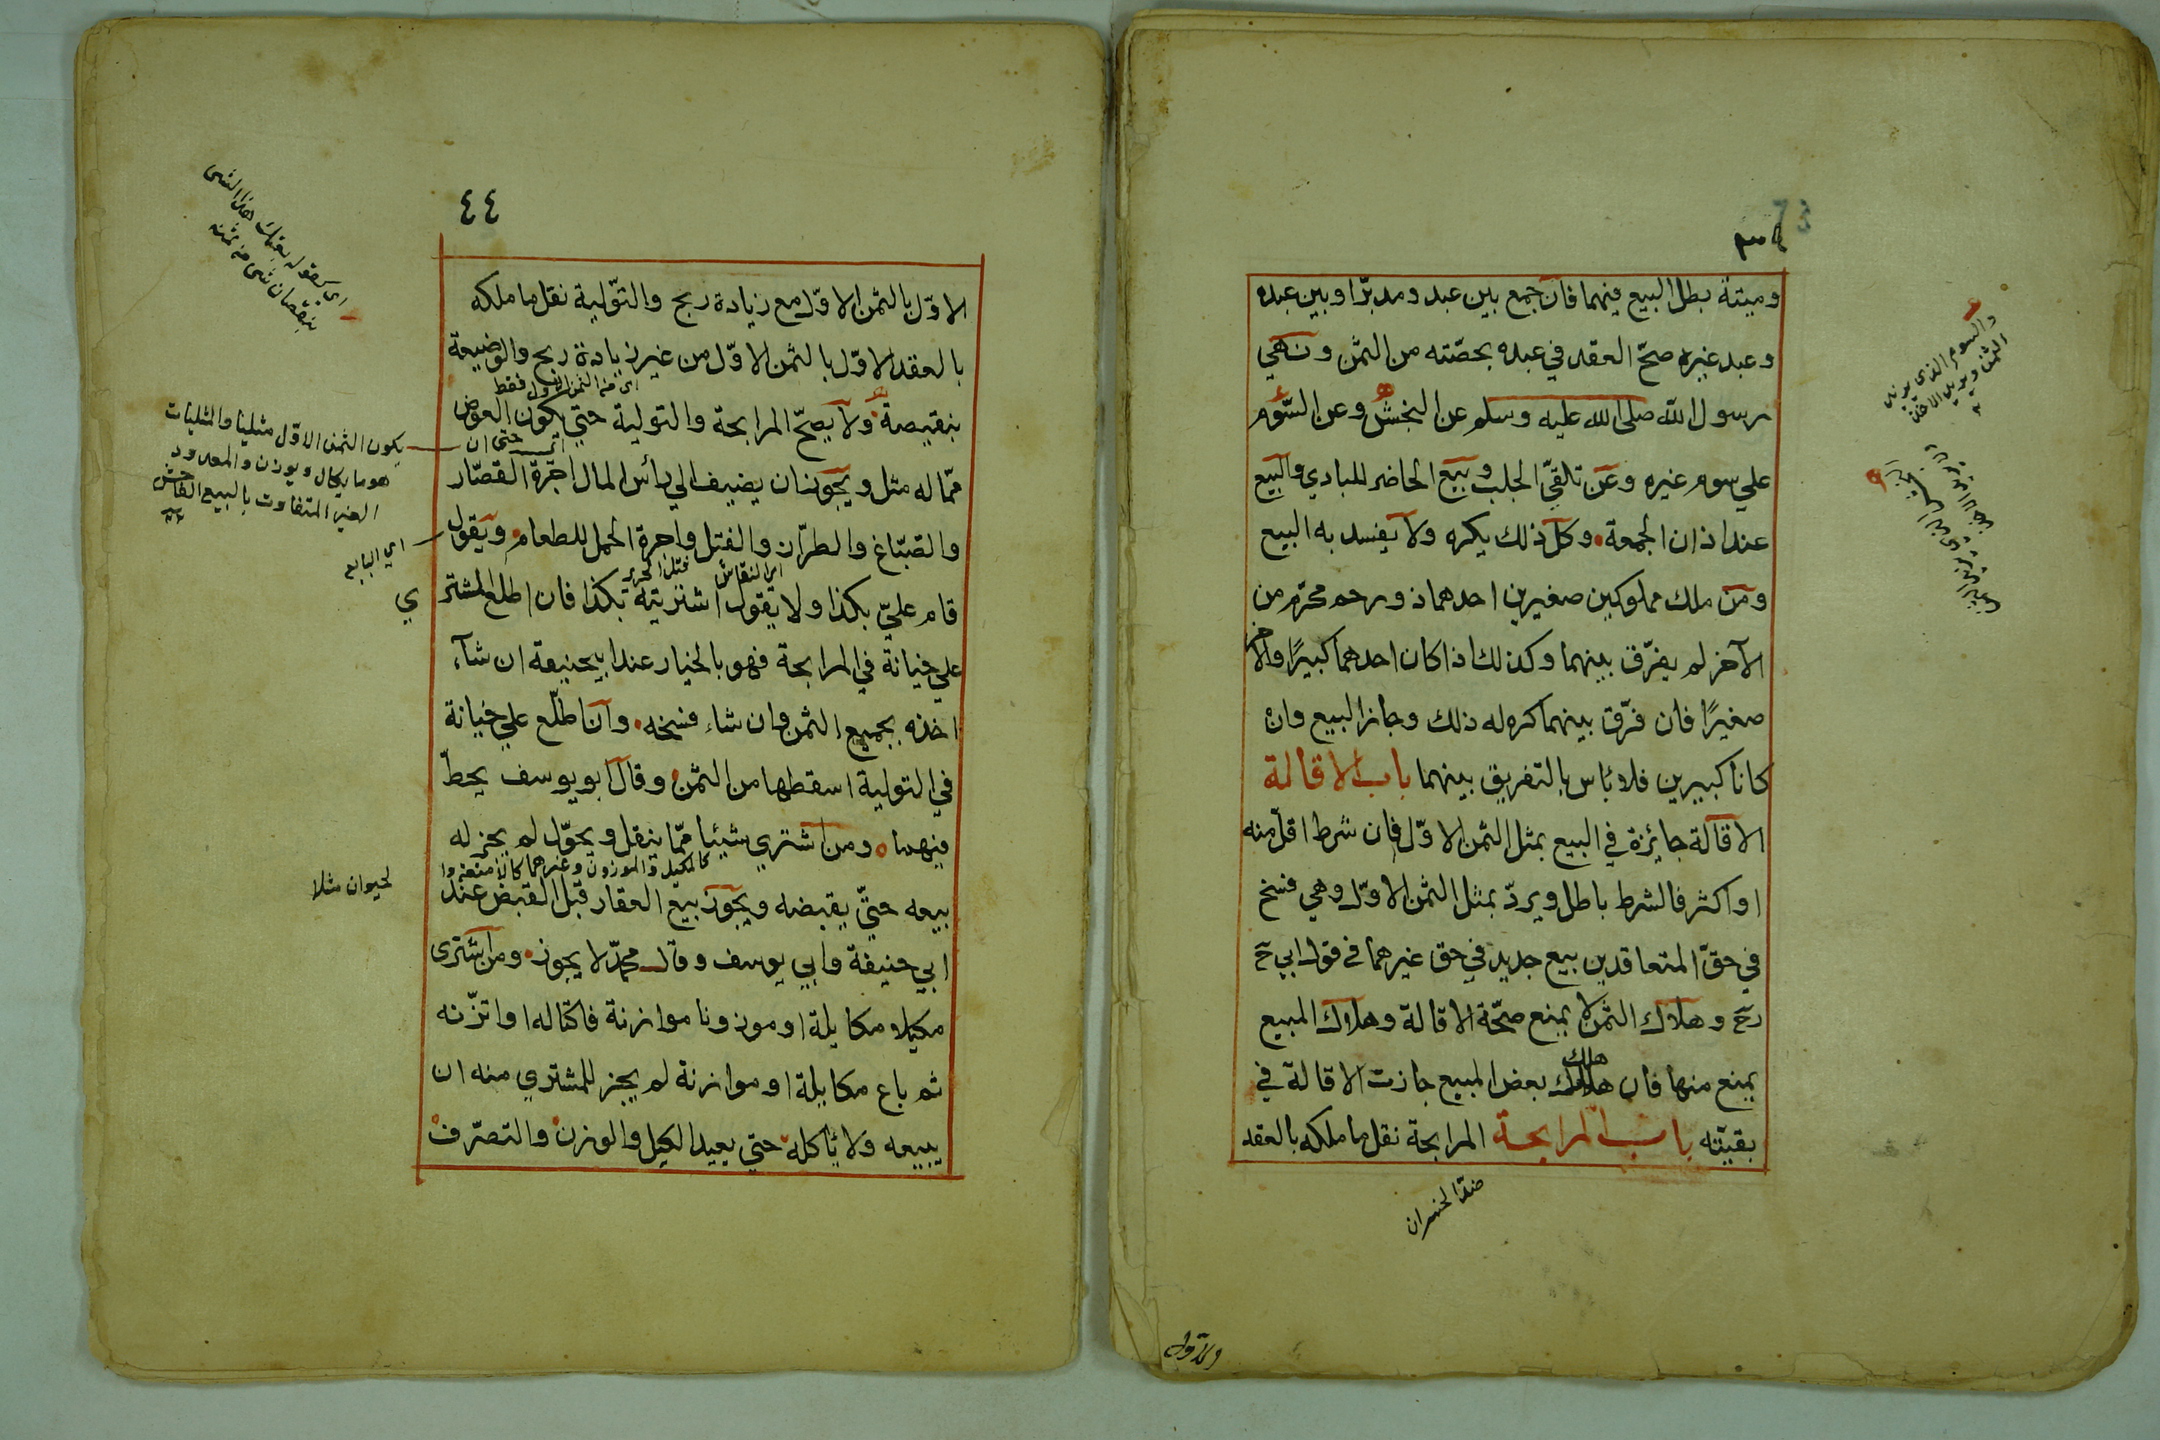 وميتة بطل البيع فيهما فان جمع بين عبد ومدبّرا وبين عبده
وعبد غيره صحّ العقد في عبده بحصّته من الثمن ونهي
رسول الله صلى الله عليه وسلم عن النجش وعن السّوم
علي سوم غيره وعن تلقيّ الجلب وبيع الحاضر للبادي والبيع
عند اذان الجمعة وكل ذلك يكره ولا يفسد به البيع
ومن ملك مملوكين صغيرين احدهما ذو رحم محرّم من
الآخر لم يفرّق بينهما وكذلك اذا كان احدهما كبيرًا والآخر
صغيرًا فان فرّق بينهما كره له ذلك وجاز البيع وان
كانا كبيرين فلا بأس بالتفريق بينهما باب الاقالة
الاقالة جائزة في البيع بمثل الثمن الاوّل فان شرط اقلّ منه
او اكثر فالشرط باطل ويردّ بمثل الثمن الاوّل وهي فسخ
في حقّ المتعاقدين بيع جديد في حق غيرهما في قول ابي ح
رح وهلاك الثمن لا يمنع صحّة الاقالة وهلاك المبيع
يمنع منها فان هلك بعض المبيع جازت الاقالة في
بقيّته باب المرابحة المرابحة نقل ما ملكه بالعقد
والسوم الذي يزيد
الثمن ويريد الاخذ
ضدّ الخسران
والاول
٤٤
الاوّل بالثمن الاوّل مع زيادة ربح والتوّلية نقل ما ملكه
بالعقد الاوّل بالثمن الاوّل من غير زيادة ربح والوضيعة
اي من الثمن الاول فقط
بنقيصة ولا يصحّ المرابحة والتولية حتيّ يكون العوض
اي حتى ان
ممّا له مثل ويجوز ان يضيف الي رأس المال اجرة القصّار
والصّبّاغ والطرّاز والفتل واجرة الحمل للطعام ويقول
فتل الحرير
قام عليّ بكذا ولا يقول اشتريته بكذا فان اطلع المشتري
علي خيانة في المرابحة فهو بالخيار عند ابيحنيفة ان شآء
اخذه بجميع الثمن وان شاء فسخه وان اطلّع علي خيانة
في التولية اسقطها من الثمن وقال ابو يوسف يحطّ
فيهما ومن اشتري شيئا ممّا ينقل ويحوّل لم يجز له
كالمكيل والموزون وغيرهما كالامتعة وا
لحيوان مثلا
بيعه حتيّ يقبضه ويجوز بيع العقار قبل القبض عند
ابي حنيفة وابي يوسف وقال محمّد لا يجوز ومن اشترى
مكيلا مكايلة او موزونا موازنة فاكتاله او اتزّنه
ثم باع مكايلة او موازنة لم يجز للمشتري منه ان
يبيعه ولا يأكله حتي يعيد الكيل والوزن والتصرّف
اي كقوله بعتك هذا الشى
بنقصان شى من ثمنه
يكون الثمن الاوّل مثليا والمثليات
هو ما يكال ويوزن والمعدود
الغير المتفاوت بالبيع الفاحش
اي البايع